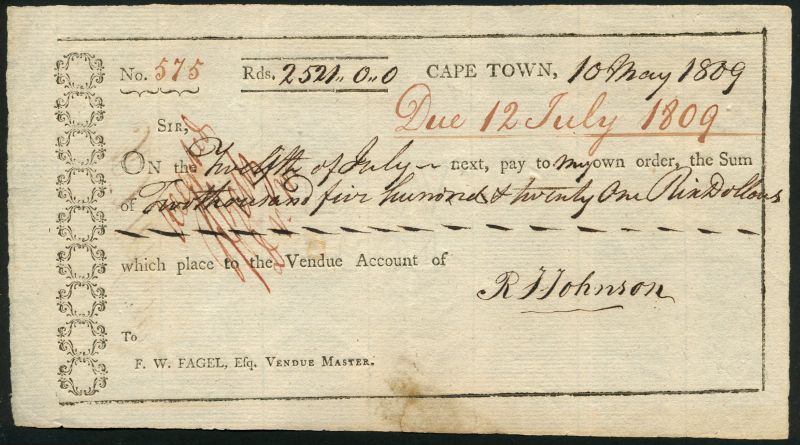 No. 575 Rds. 2521,, 0,, 0 CAPE TOWN, 10 May 1809
Due 12 July 1809
SIR,
ON the Twelfth of July next, pay to my own order, the Sum
of Two thousand five hundred & twenty One Rix Dollars
which place to the Vendue Account of
R J Johnson
To
F. W. FAGEL, Esq. VENDUE MASTER.